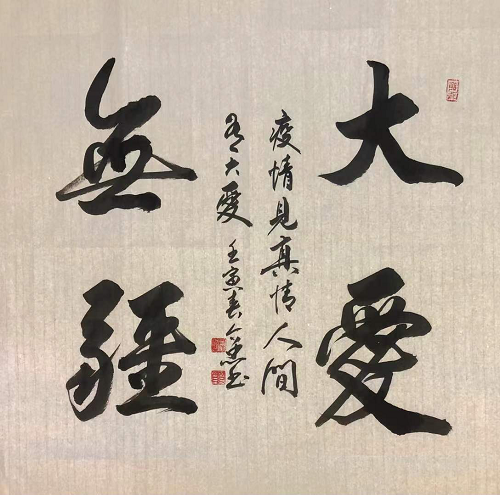 大愛
疫情見真情人間
有大愛 壬寅春 书
無疆